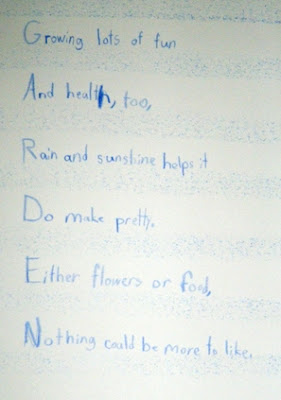 Growing lots of fun
And health, too,
Rain and sunshine helps it
Do make pretty.
Either flowers or food,
Nothing could be more to like.